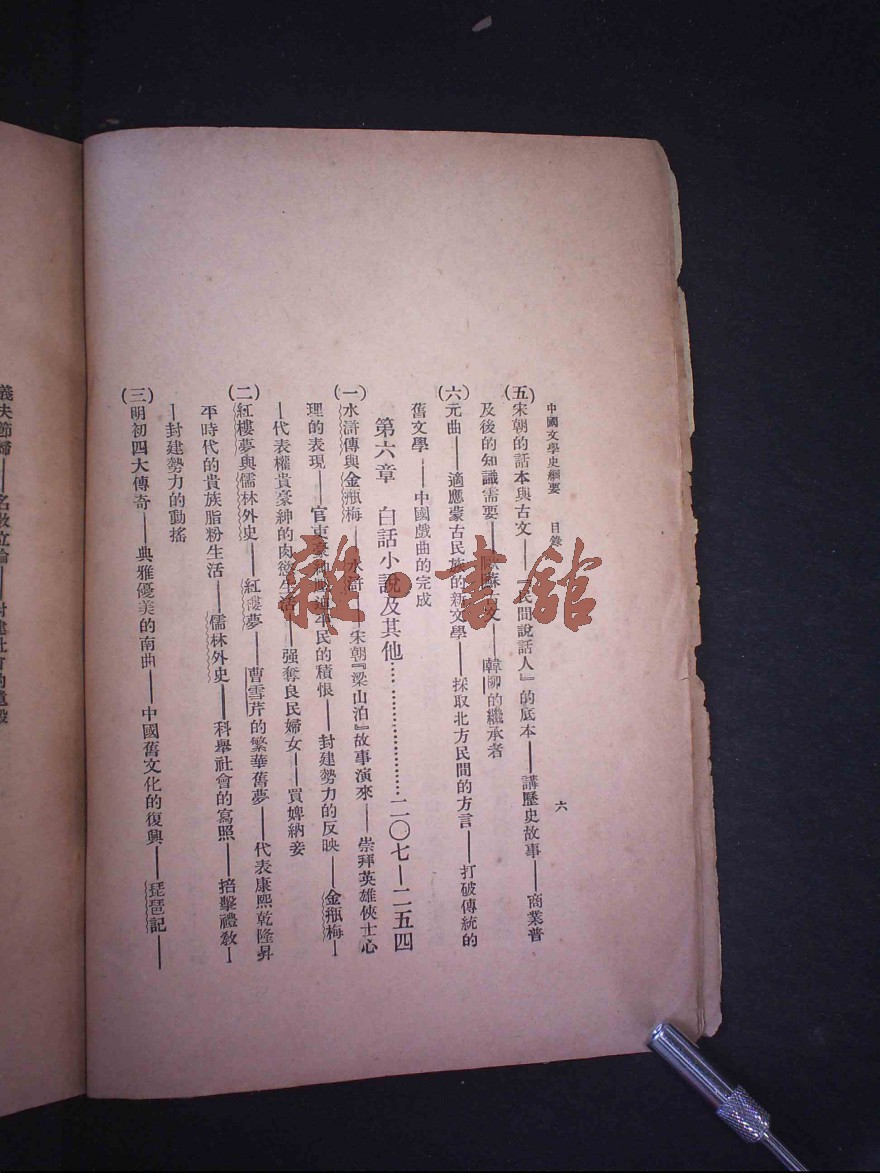 中國文學史綱要　目錄　六
(五)宋朝的話本與古文——『民間說話人』的底本——講歷史故事——商業普
及後的知識需要——歐蘇古文——韓柳的繼承者
(六)元曲——適應蒙古民族的新文學——採取北方民間的方言——打破傳統的
舊文學——中國戲曲的完成
第六章　白話小說及其他……………………二〇七—二五四
(一)水滸傳與金瓶梅——水滸——宋朝『梁山泊』故事演來——崇拜英雄俠士心
理的表現——官吏豪紳壓迫平民的積恨——封建勢力的反映——金瓶梅—
—代表權貴豪紳的肉慾生活——强奪良民婦女——買婢納妾
(二)紅樓夢與儒林外史——紅樓夢——曹雪芹的繁華舊夢——代表康熙乾隆昇
平時代的貴族脂粉生活——儒林外史——科舉社會的寫照——掊擊禮敎—
—封建勢力的動搖
(三)明初四大傳奇——典雅優美的南曲——中國舊文化的復興——琵琶記——
義夫節婦——名敎立論——封建社會的遺毀
雜·書館